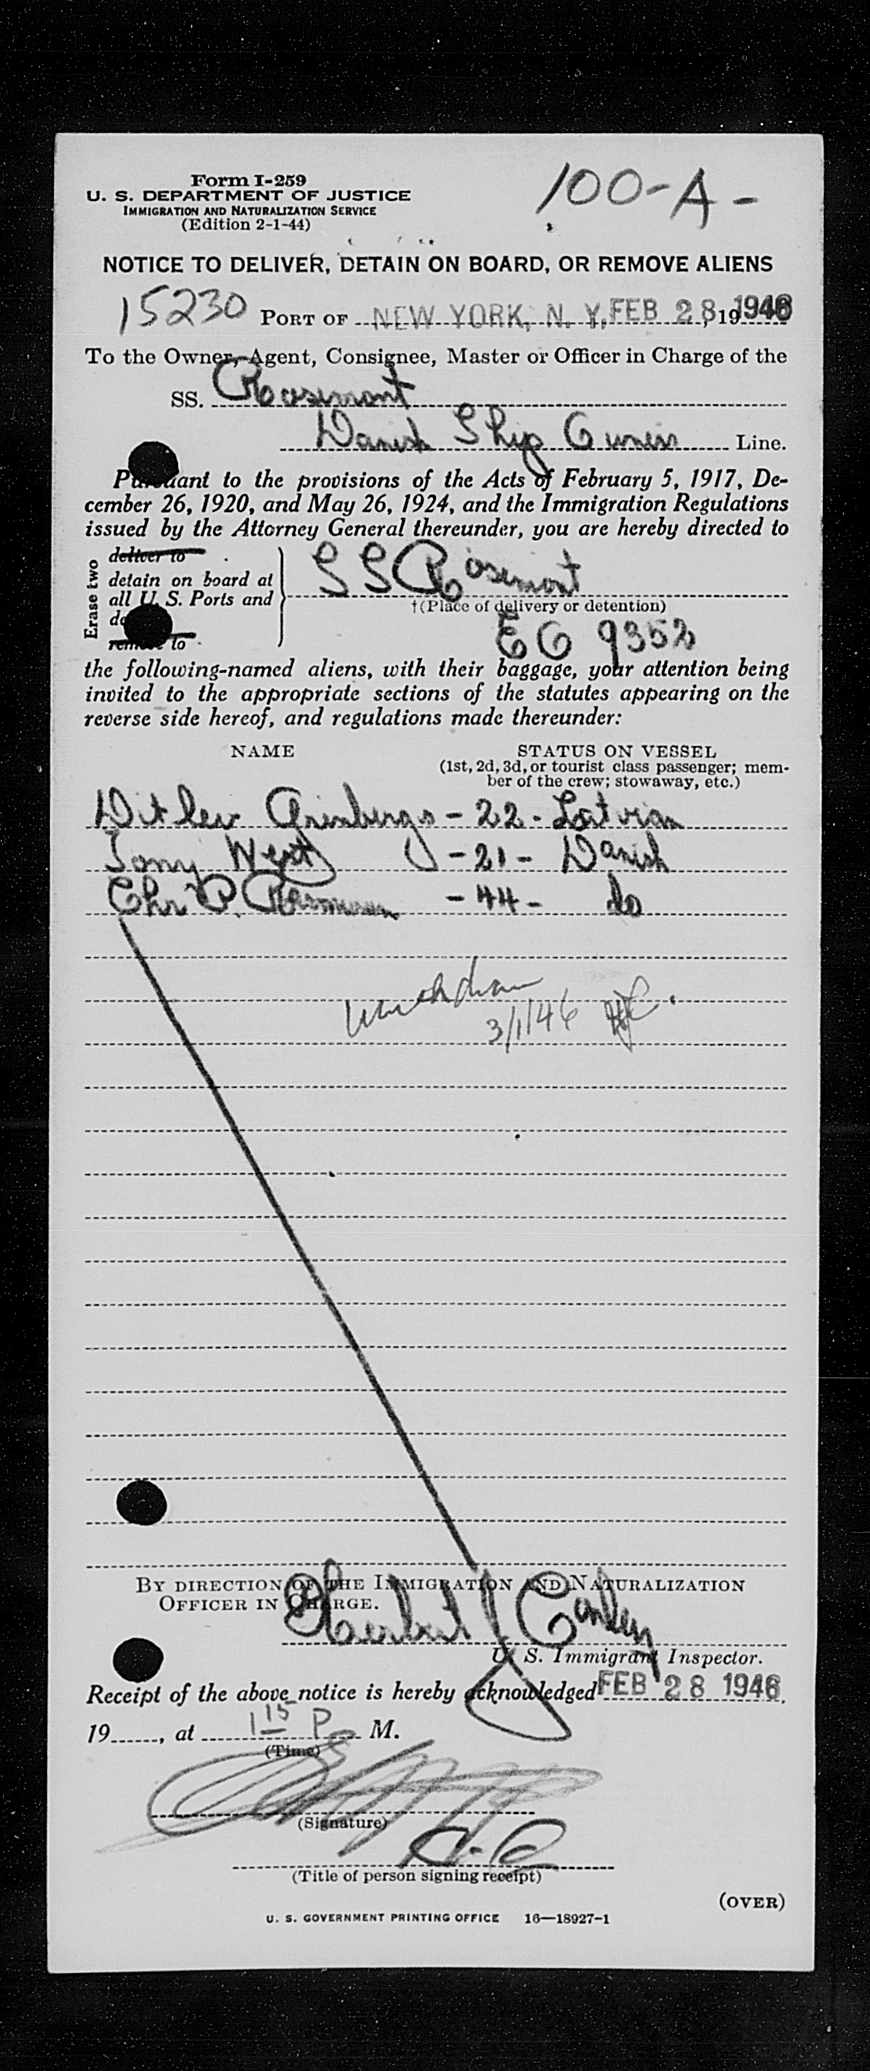 Form I-259
U. S. DEPARTMENT OF JUSTICE
IMMIGRATION AND NATURALIZATION SERVICE
(Edition 2-1-44)
100-A-
NOTICE TO DELIVER, DETAIN ON BOARD, OR REMOVE ALIENS
15230 PORT OF NEW YORK, N. Y. FEB 28 1946, 19
To the Owner, Agent, Consignee, Master or Officer in Charge of the
SS. Rosemont
Danish Ship Owners Line.
Pursuant to the provisions of the Acts of February 5, 1917, De-
cember 26, 1920, and May 26, 1924, and the Immigration Regulations
issued by the Attorney General thereunder, you are hereby directed to
Erase two
deliver to
detain on board at
all U. S. Ports and
remove to
SS Rosemont
†(Place of delivery or detention)
EC 9352
the following-named aliens, with their baggage, your attention being
invited to the appropriate sections of the statutes appearing on the
reverse side hereof, and regulations made thereunder:
NAME STATUS ON VESSEL
(1st, 2d, 3d, or tourist class passenger; mem-
ber of the crew; stowaway, etc.)
Ditlev Grinbergs - 22 - Latvian
Tony West - 21 - Danish
Chr P. Rasmussen - 44 - do
3/1/46
BY DIRECTION OF THE IMMIGRATION AND NATURALIZATION
OFFICER IN CHARGE.
Herbert Conley
U. S. Immigrant Inspector.
Receipt of the above notice is hereby acknowledged FEB 28 1946,
19, at 1 15 P M.
(Time)
(Signature)
(Title of person signing receipt)
(OVER)
U. S. GOVERNMENT PRINTING OFFICE 16—18927-1